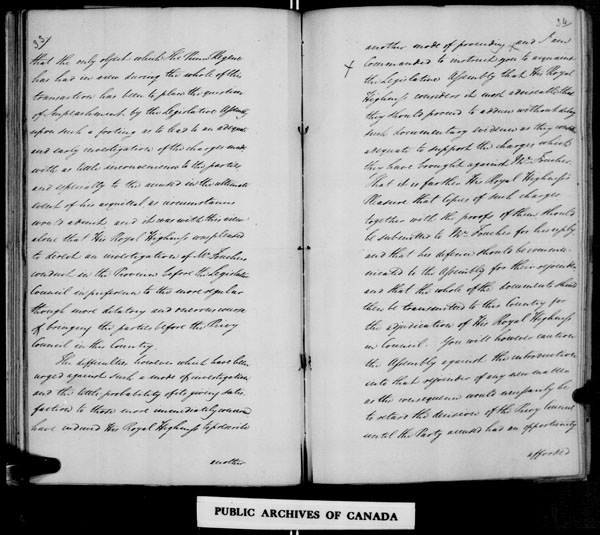 33
that the only object which The Prince Regent
has had in view during the whole of this
transaction has been to place the question
of Impeachment by the Legislative Assembly
upon such a footing as to lead to an adequate
and early investigation of the charges made
with as little inconvenience to the parties
and especially to the accused in the ultimate
event of his acquittal as circumstances
would admit and it was with this view
alone that His Royal Highness was pleased
to direct an investigation of Mr Foucher's
conduct in the Province before the Legislative
Council in preference to the more regular
though more dilatory and onerous course
of bringing the parties before the Privy
Council in this Country.
The difficulties however which have been
urged against such a mode of investigation
and the little probability of its giving satis
faction to those more immediately concerned
have induced His Royal Highness to prescribe
another
34
another mode of proceeding and I am
commanded to instruct you to acquaint
the Legislative Assembly that His Royal
Highness considers it most adviseable that
they should proceed to adduce without delay
such documentary evidence as they consider
adequate to support the charges which
they have brought against Mr Foucher.
That it is further His Royal Highness's
Pleasure that copies of such charges
together with the proofs of them should
be submitted to Mr Foucher for his reply
and that his defence should be commu-
nicated to the Assembly for their rejoinder
and that the whole of the documents should
then be transmitted to this Country for
the adjudication of His Royal Highness
in Council. You will however caution
the Assembly against the introduction
into that rejoinder of any new matter
as the consequence would necessarily be
to retard the decision of the Privy Council
until the Party accused had an opportunity
afforded
PUBLIC ARCHIVES OF CANADA